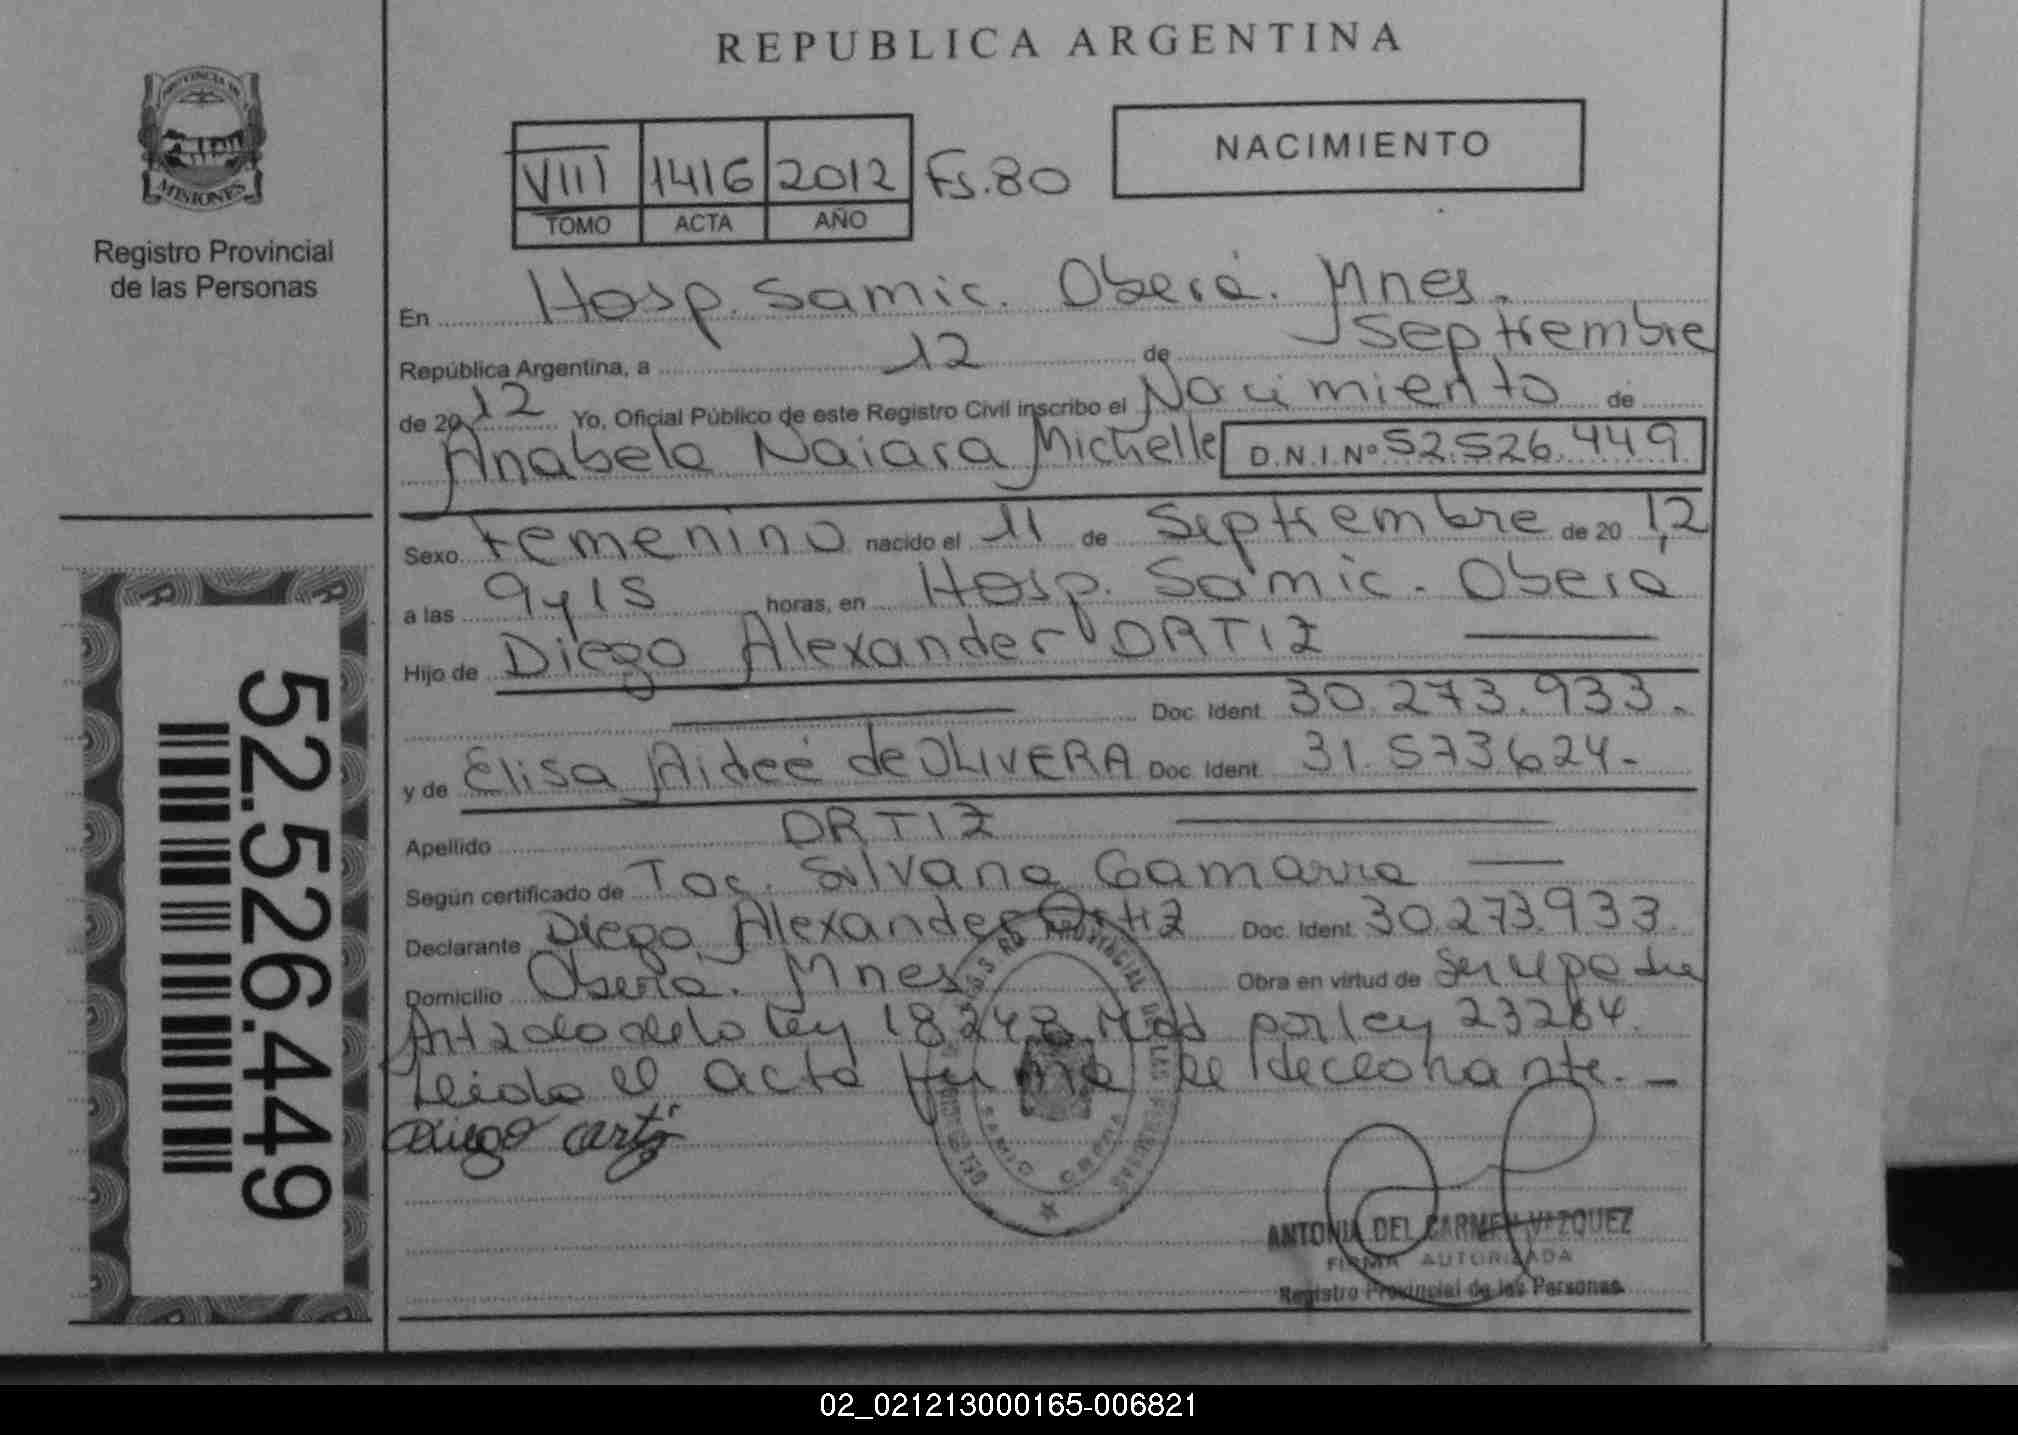 REPUBLICA ARGENTINA
PROVINCIA DE
MISIONES
Registro Provincial
de las Personas
VIII 1416 2012 Fs. 80
TOMO ACTA AÑO
NACIMIENTO
En Hosp. Samic. Oberá. Mnes.
República Argentina, a 12 de Septiembre
de 2012 Yo, Oficial Público de este Registro Civil inscribo el Nacimiento de
Anabela Naiara Michelle D.N.I.Nº 52.526.449
Sexo Femenino nacido el 11 de Septiembre de 2012
a las 9 y 15 horas, en Hosp. Samic. Obera
Hijo de Diego Alexander ORTIZ
Doc. Ident. 30.273.933.
y de Elisa Aideé de OLIVERA Doc. Ident. 31.573624-
Apellido ORTIZ
Según certificado de Toc. Silvana Gamarra
Declarante Diego Alexander Ortiz Doc. Ident. 30.273.933.
Domicilio Oberá. Mnes Obra en virtud de
Art 2do de la Ley 18248 Mod por ley 23264.
Leida el acta firma el declarante.-
Diego
52.526.449
ANTONIA DEL CARMEN VAZQUEZ
FIRMA AUTORIZADA
Registro Provincial de las Personas
02_021213000165-006821